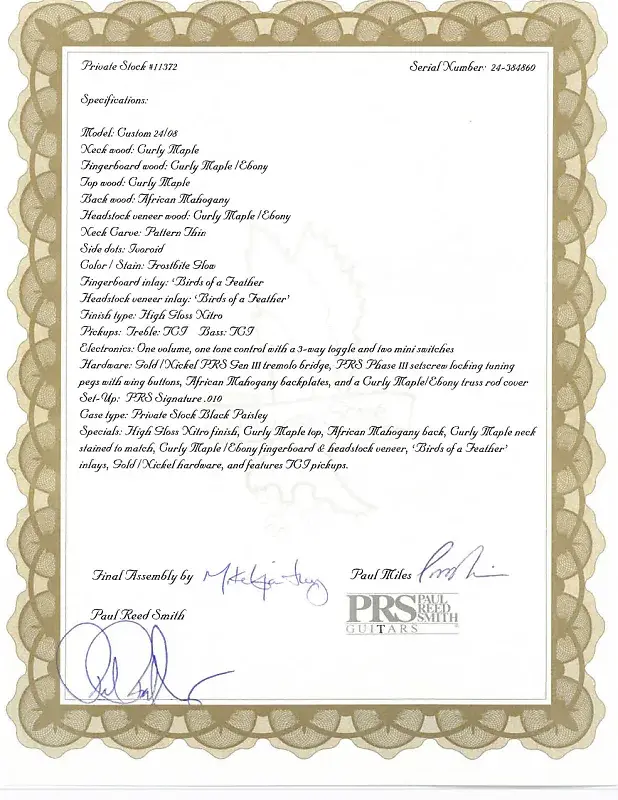 Private Stock #11372 Serial Number: 24-384860
Specifications:
Model: Custom 24/08
Neck wood: Curly Maple
Fingerboard wood: Curly Maple / Ebony
Top wood: Curly Maple
Back wood: African Mahogany
Headstock veneer wood: Curly Maple / Ebony
Neck Carve: Pattern Thin
Side dots: Ivoroid
Color / Stain: Frostbite Glow
Fingerboard inlay: 'Birds of a Feather
Headstock veneer inlay: 'Birds of a Feather'
Finish type: High Gloss Nitro
Pickups: Treble: TCI Bass: TCI
Electronics: One volume, one tone control with a 3-way toggle and two mini switches
Hardware: Gold / Nickel PRS Gen III tremolo bridge, PRS Phase III setscrew locking tuning
pegs with wing buttons, African Mahogany backplates, and a Curly Maple/Ebony truss rod cover
Set-Up: PRS Signature .010
Case type: Private Stock Black Paisley
Specials: High Gloss Nitro finish, Curly Maple top, African Mahogany back, Curly Maple neck
stained to match, Curly Maple / Ebony fingerboard & headstock veneer, 'Birds of a Feather'
inlays, Gold / Nickel hardware, and features TCI pickups.
Final Assembly by
Paul Miles
Paul Reed Smith
PRS PAUL REED SMITH
GUITARS